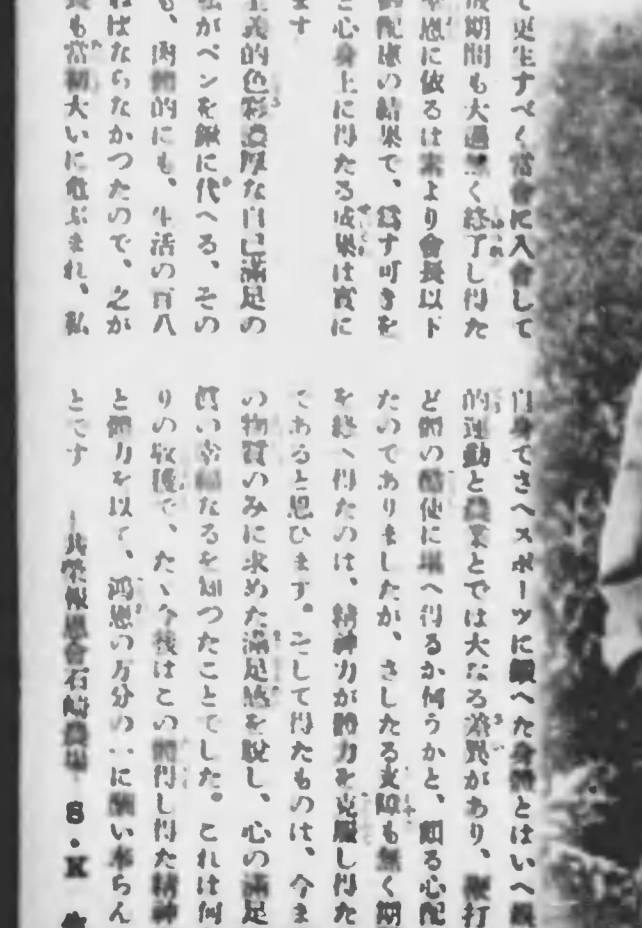 て更生すべく當會に入會して
期間も大過無く終了し得た
恩に依るは素より會長以下
配慮の結果で、爲す可きを
心身上に得たる成果は實に
ます
義的色彩濃厚な自己滿足の
私がペンを鍬に代へる、その
も、肉體的にも、生活の百八
ねばならなかつたので、之が
も當初大いに危ぶまれ、私
自身でさへスポーツに鍛へた身體とはいへ
的運動と農業とでは大なる差異があり、鍬打
ど體の酷使に堪へ得るか何うかと、頗る心配
たのでありましたが、さしたる支障も無く期
を終へ得たのは、精神力が體力を克服し得た
であると思ひます。そして得たものは、今ま
の物質のみに求めた滿足感を脱し、心の滿足
貴い幸福なるを知つたことでした。これは何
りの收穫で、たゞ今後はこの體得し得た精神
と體力を以て、鴻恩の万分の一に酬い奉らん
とです　―共榮報恩會石崎農場　S・K